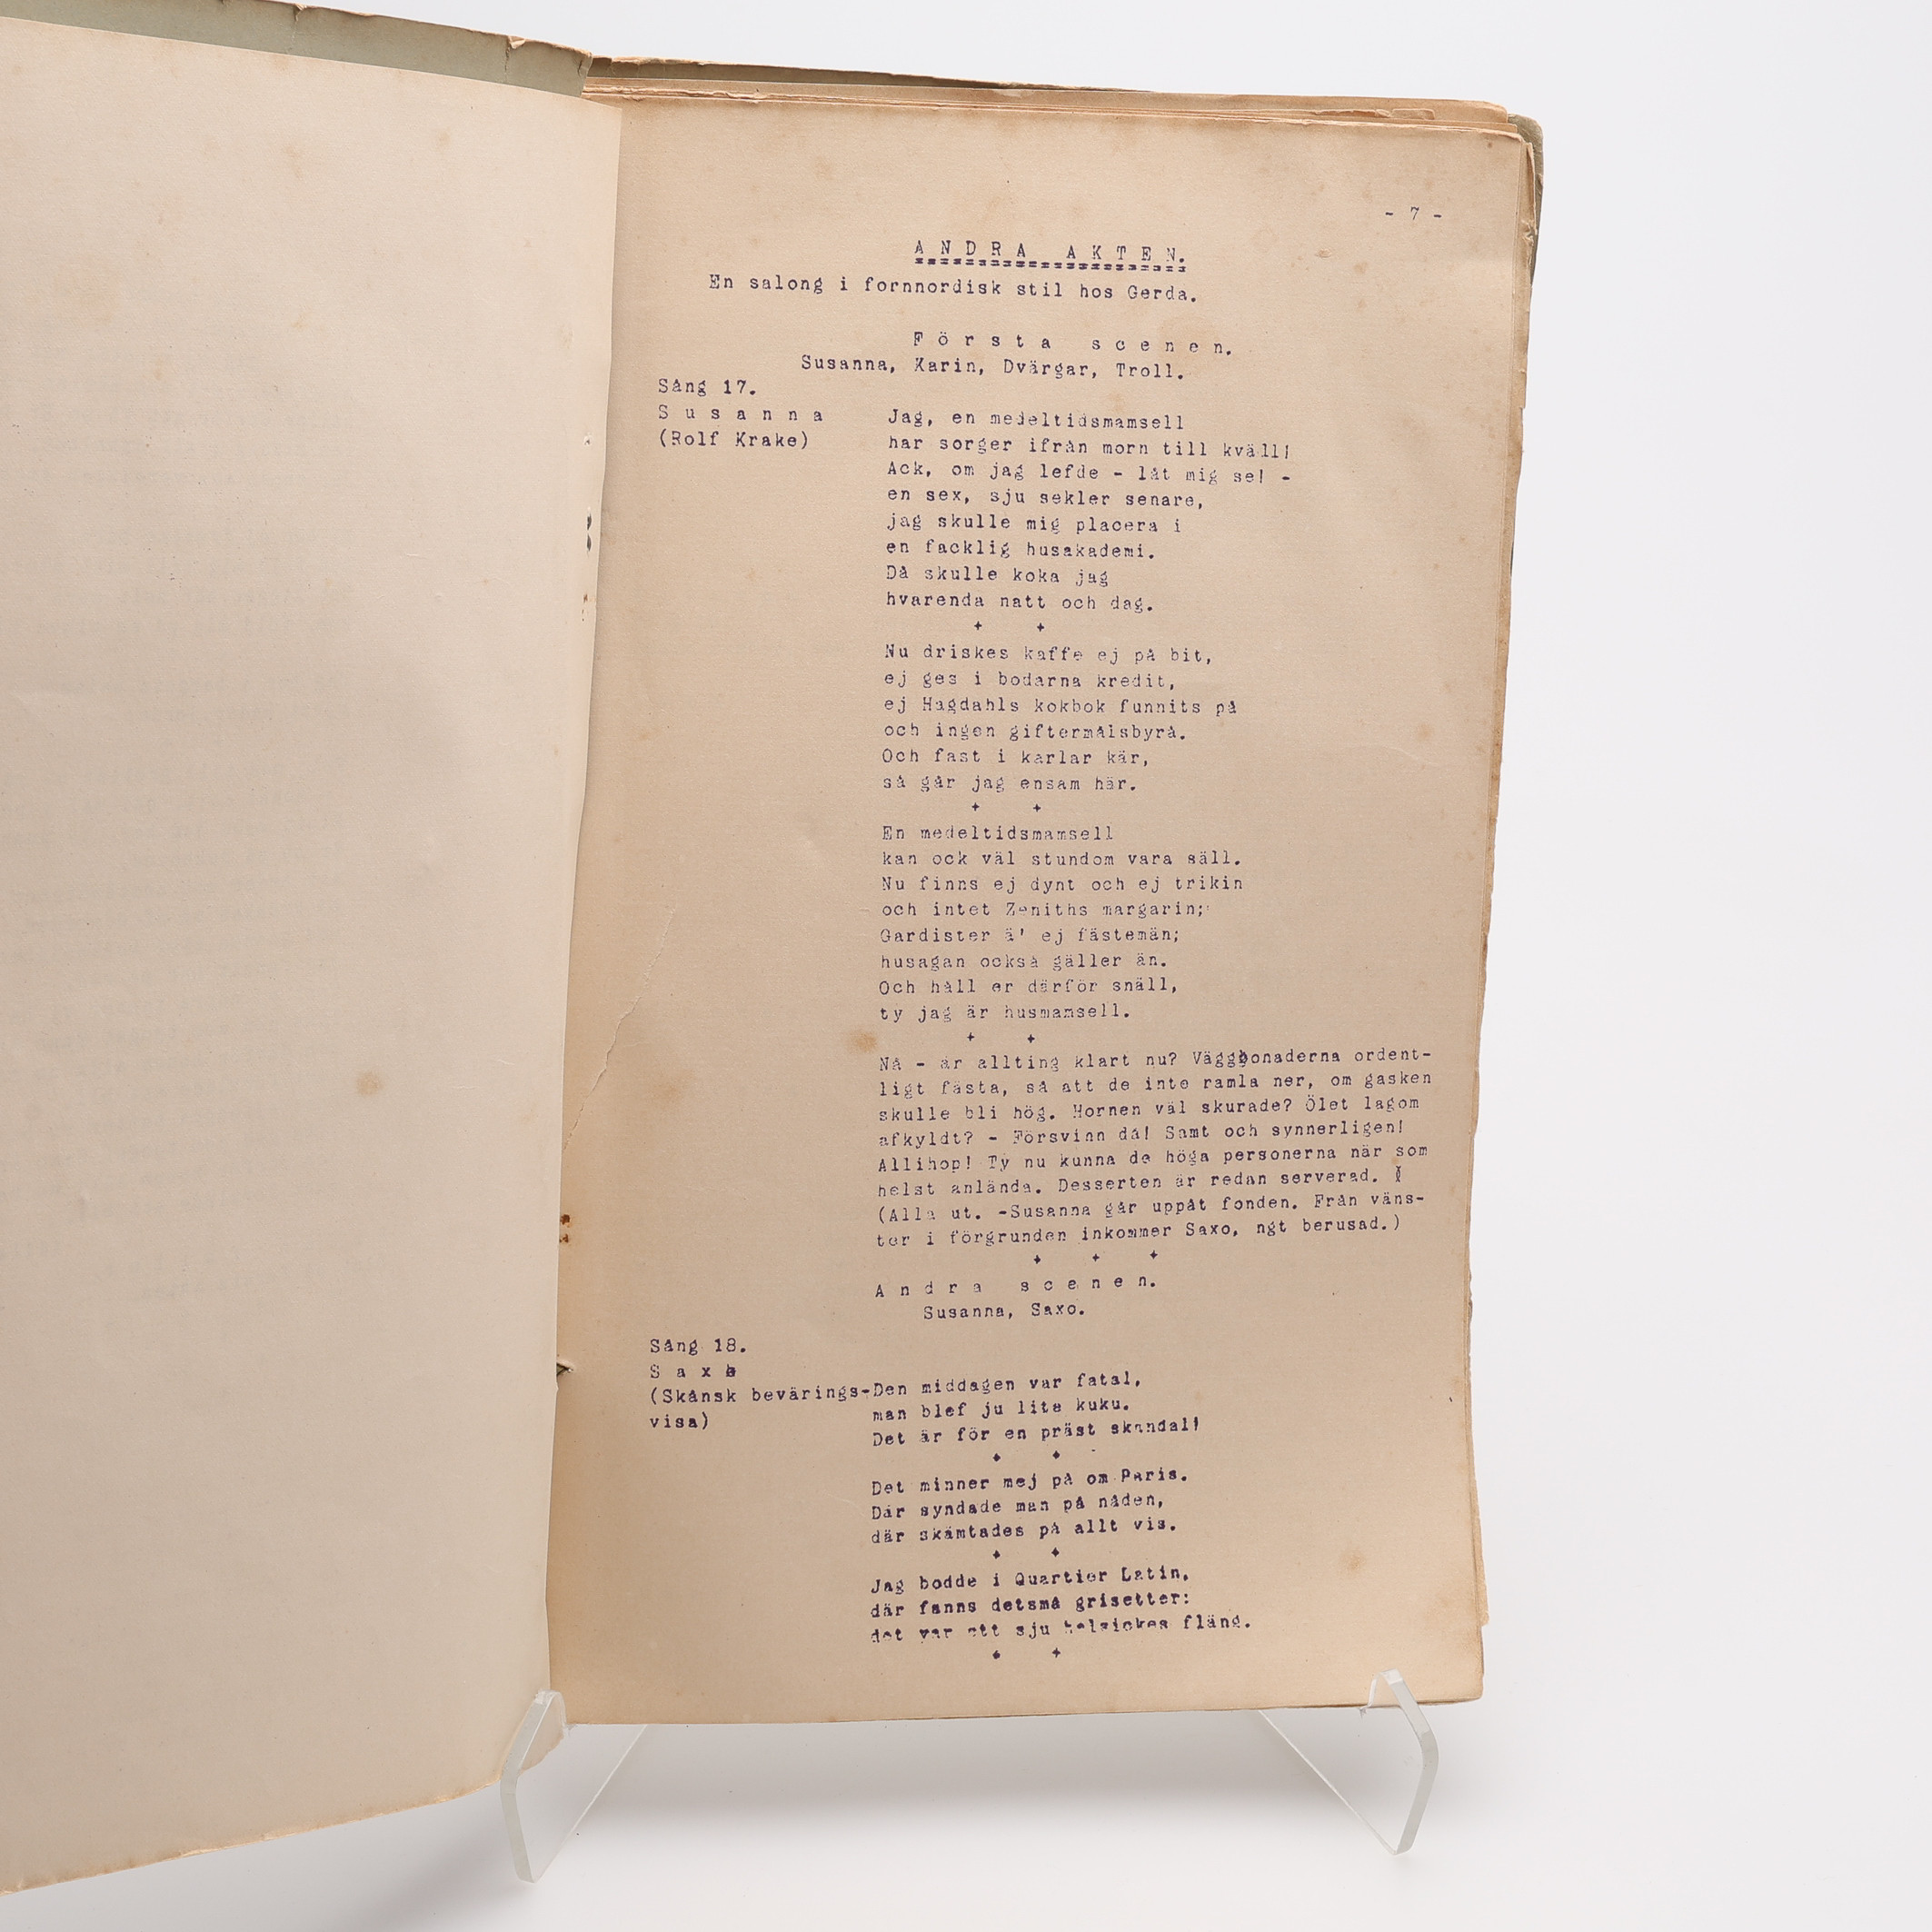 - 7 -
A N D R A   A K T E N.
En salong i fornnordisk stil hos Gerda.
F ö r s t a   s c e n e n.
Susanna, Karin, Dvärgar, Troll.
Sång 17.
S u s a n n a
(Rolf Krake)
Jag, en medeltidsmamsell
har sorger ifrån morn till kväll!
Ack, om jag lefde - låt mig se! -
en sex, sju sekler senare,
jag skulle mig placera i
en facklig husakademi.
Då skulle koka jag
hvarenda natt och dag.
+ +
Nu driskes kaffe ej på bit,
ej ges i bodarna kredit,
ej Hagdahls kokbok funnits på
och ingen giftermålsbyrå.
Och fast i karlar kär,
så går jag ensam här.
+ +
En medeltidsmamsell
kan ock väl stundom vara säll.
Nu finns ej dynt och ej trikin
och intet Zeniths margarin;
Gardister ä' ej fästemän;
husagan också gäller än.
Och håll er därför snäll,
ty jag är husmamsell.
+ +
Nå - är allting klart nu? Väggbonaderna ordent-
ligt fästa, så att de inte ramla ner, om gasken
skulle bli hög. Hornen väl skurade? Ölet lagom
afkyldt? - Försvinn då! Samt och synnerligen!
Allihop! Ty nu kunna de höga personerna när som
helst anlända. Desserten är redan serverad.
(Alla ut. -Susanna går uppåt fonden. Från väns-
ter i förgrunden inkommer Saxo, ngt berusad.)
+ + +
A n d r a   s c e n e n.
Susanna, Saxo.
Sång 18.
S a x o
(Skånsk bevärings-
visa)
Den middagen var fatal,
man blef ju lite kuku.
Det är för en präst skandal!
+ +
Det minner mej på om Paris.
Där syndade man på nåden,
där skämtades på allt vis.
+ +
Jag bodde i Quartier Latin,
där fanns detsmå grisetter:
det var ett sju helsickes fläng.
+ +